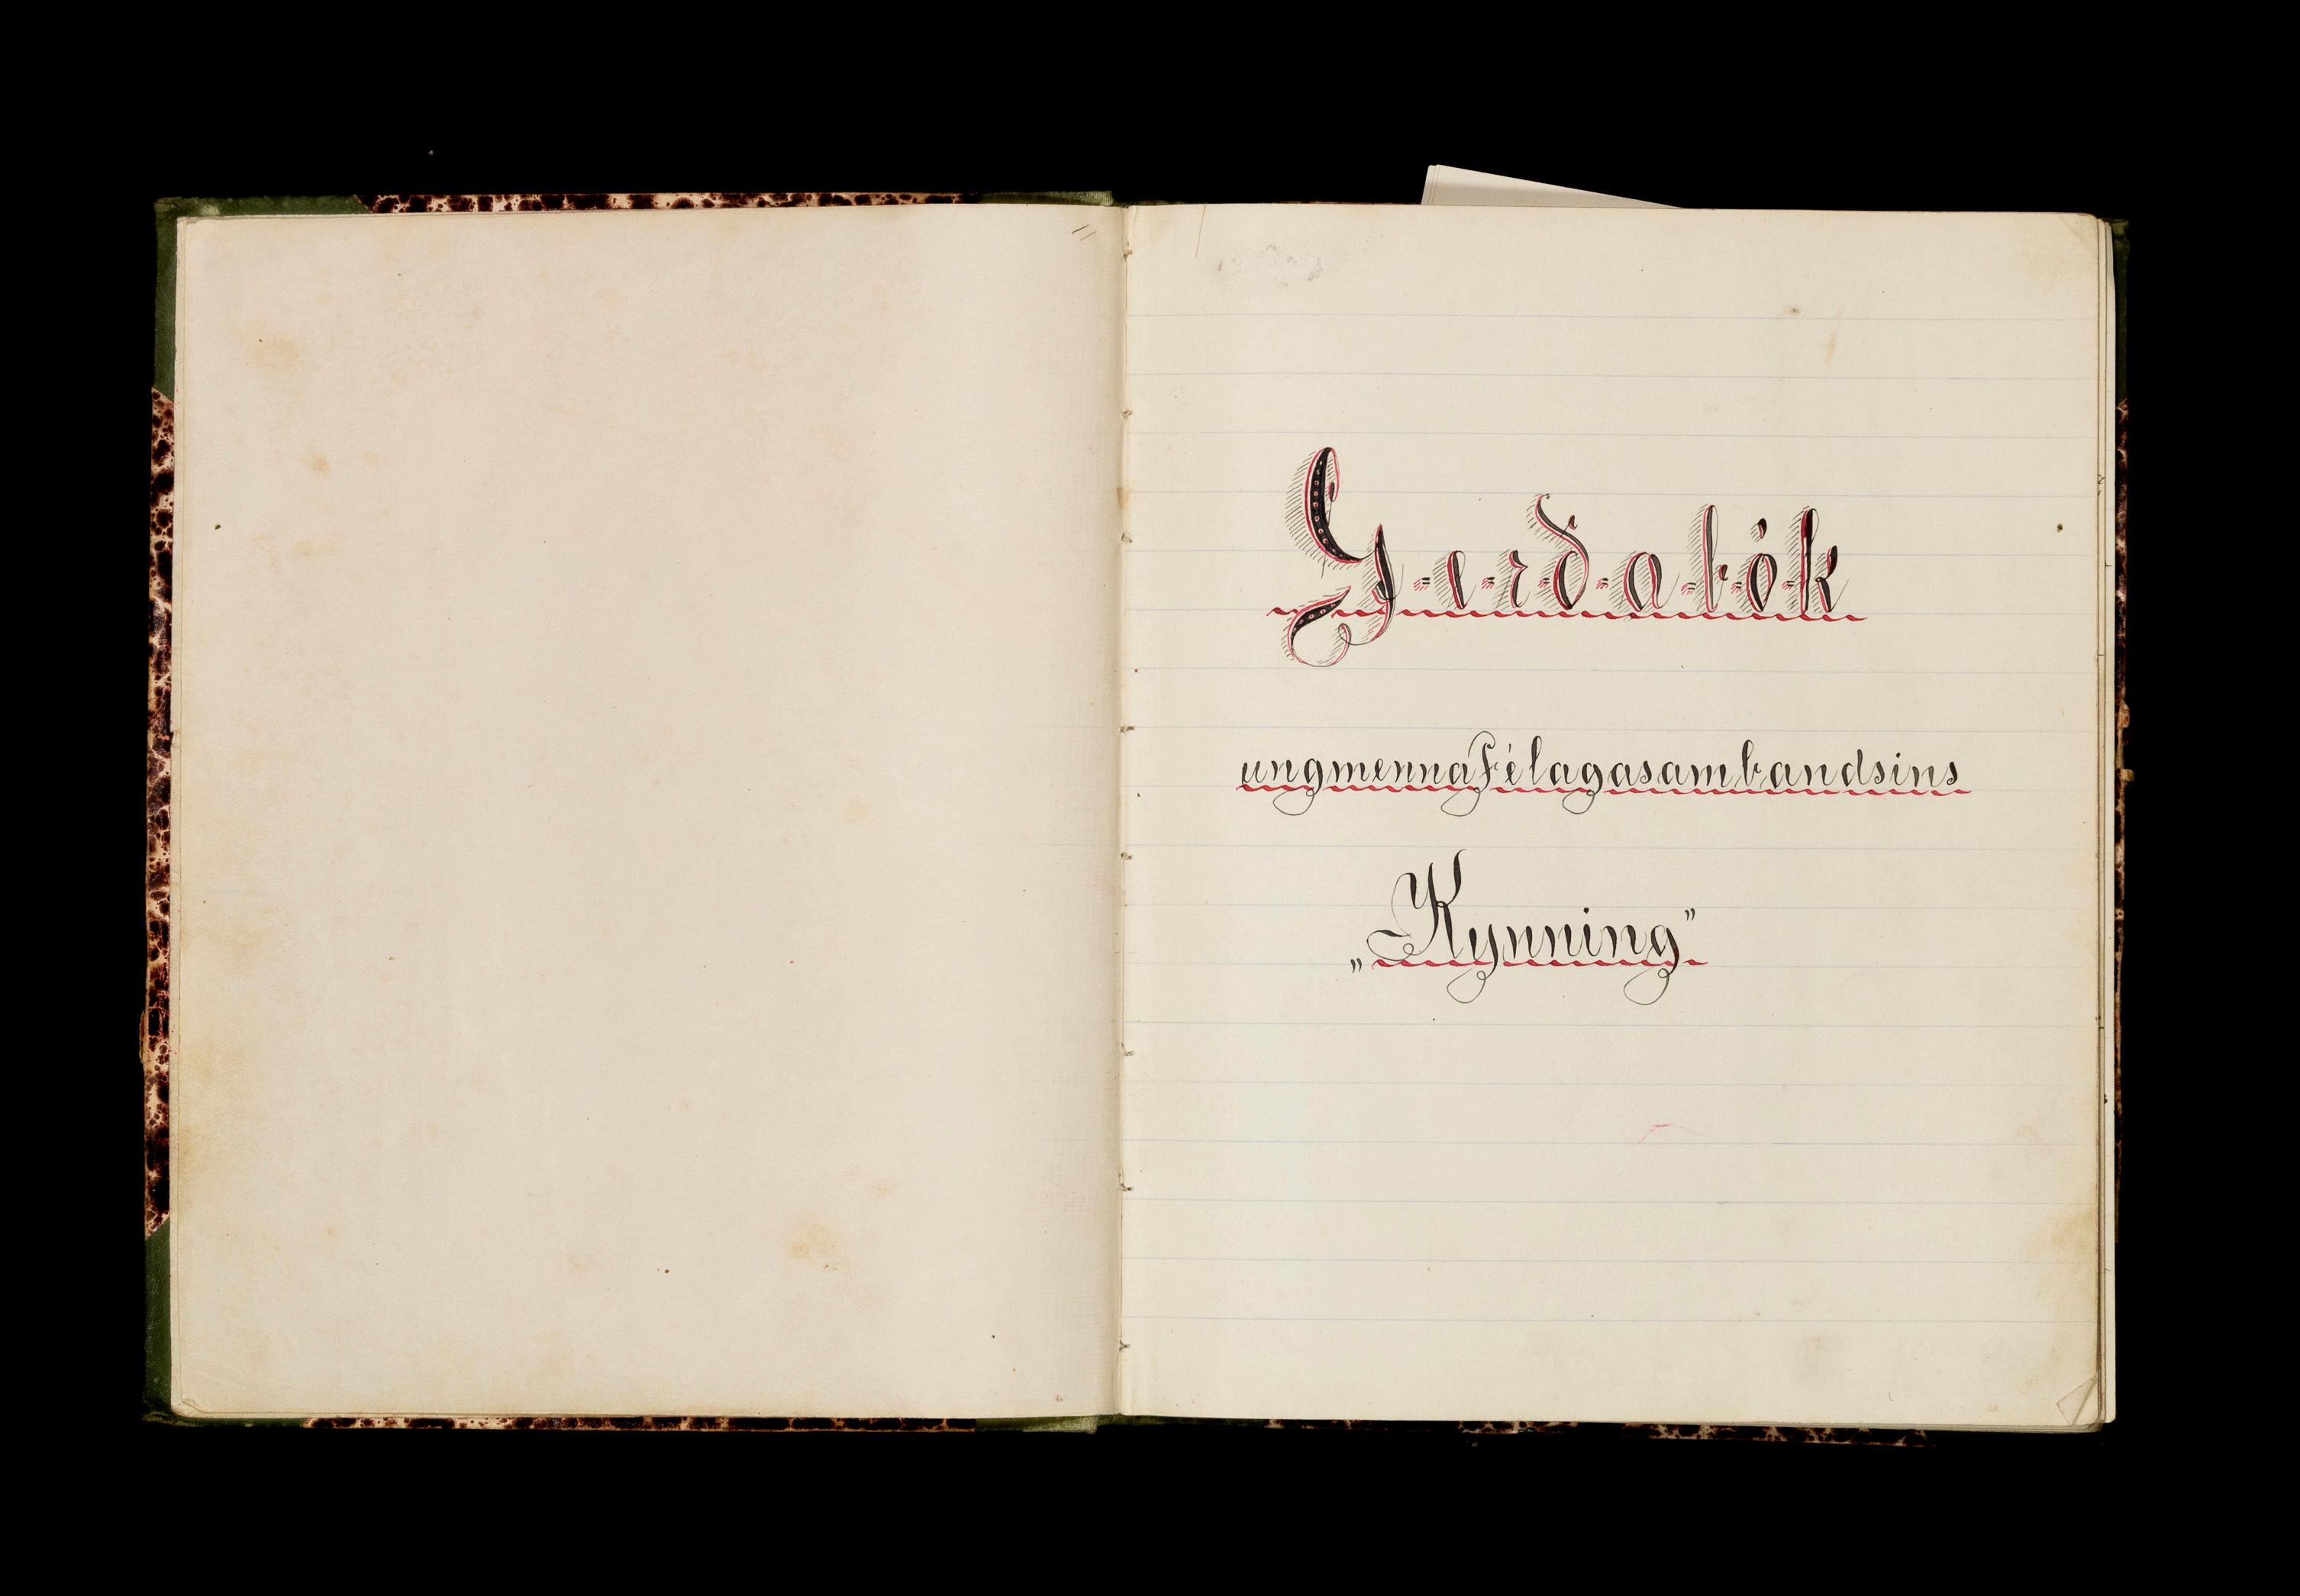 G-e-r-ð-a-b-ó-k
ungmennafélagasambandsins
„Kynning”